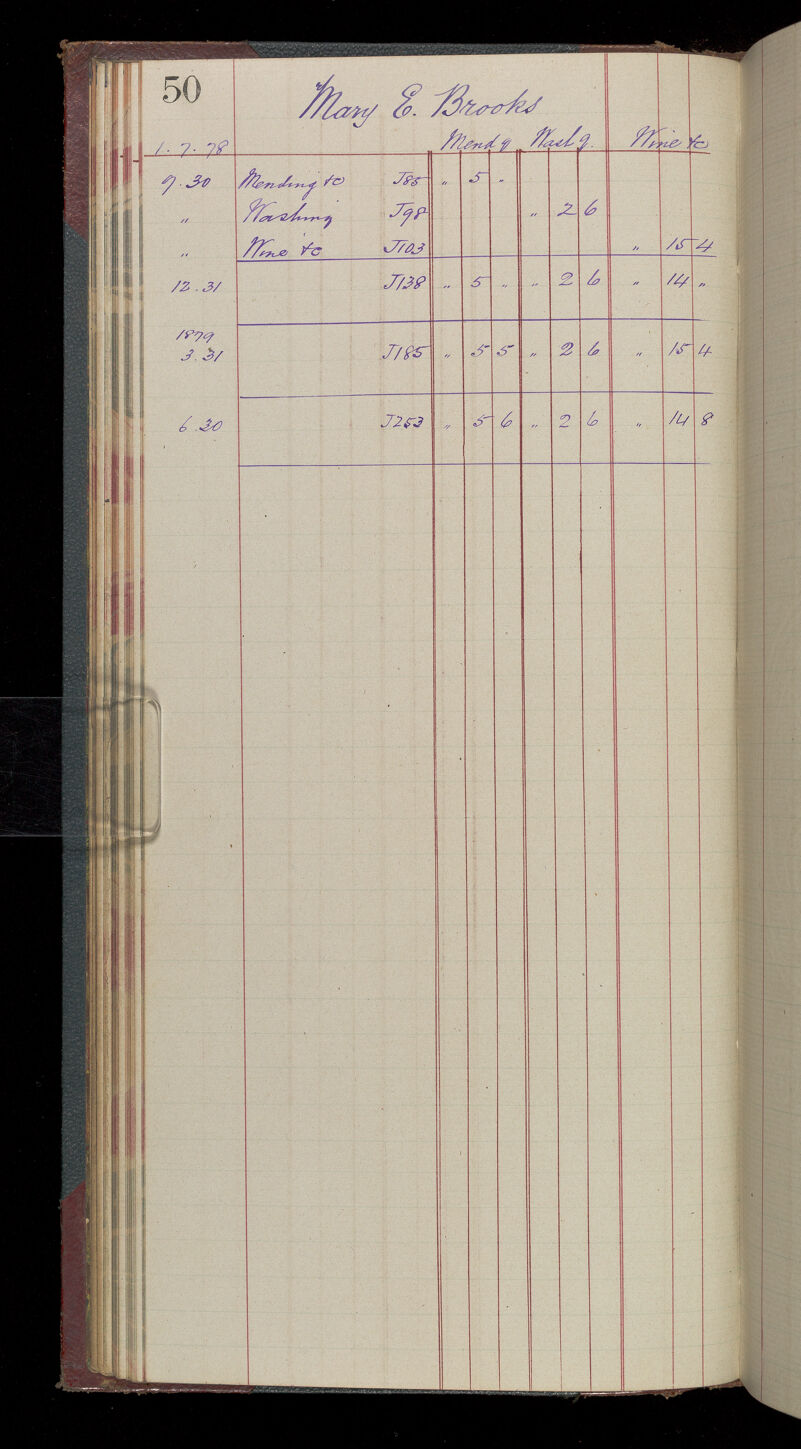 50
Mary E. Brooks
1. 7. 78 Mendg Washg. Wine &c
9. 30 Mending &c J85 " 5 "
" Washing J98 " 2 6
" Wine &c J103 " 15 4
12. 31 J138 " 5 " " 2 6 " 14 "
1879
3. 31 J185 " 5 5 " 2 6 " 15 4
6. 30 J253 " 5 6 " 2 6 " 14 8